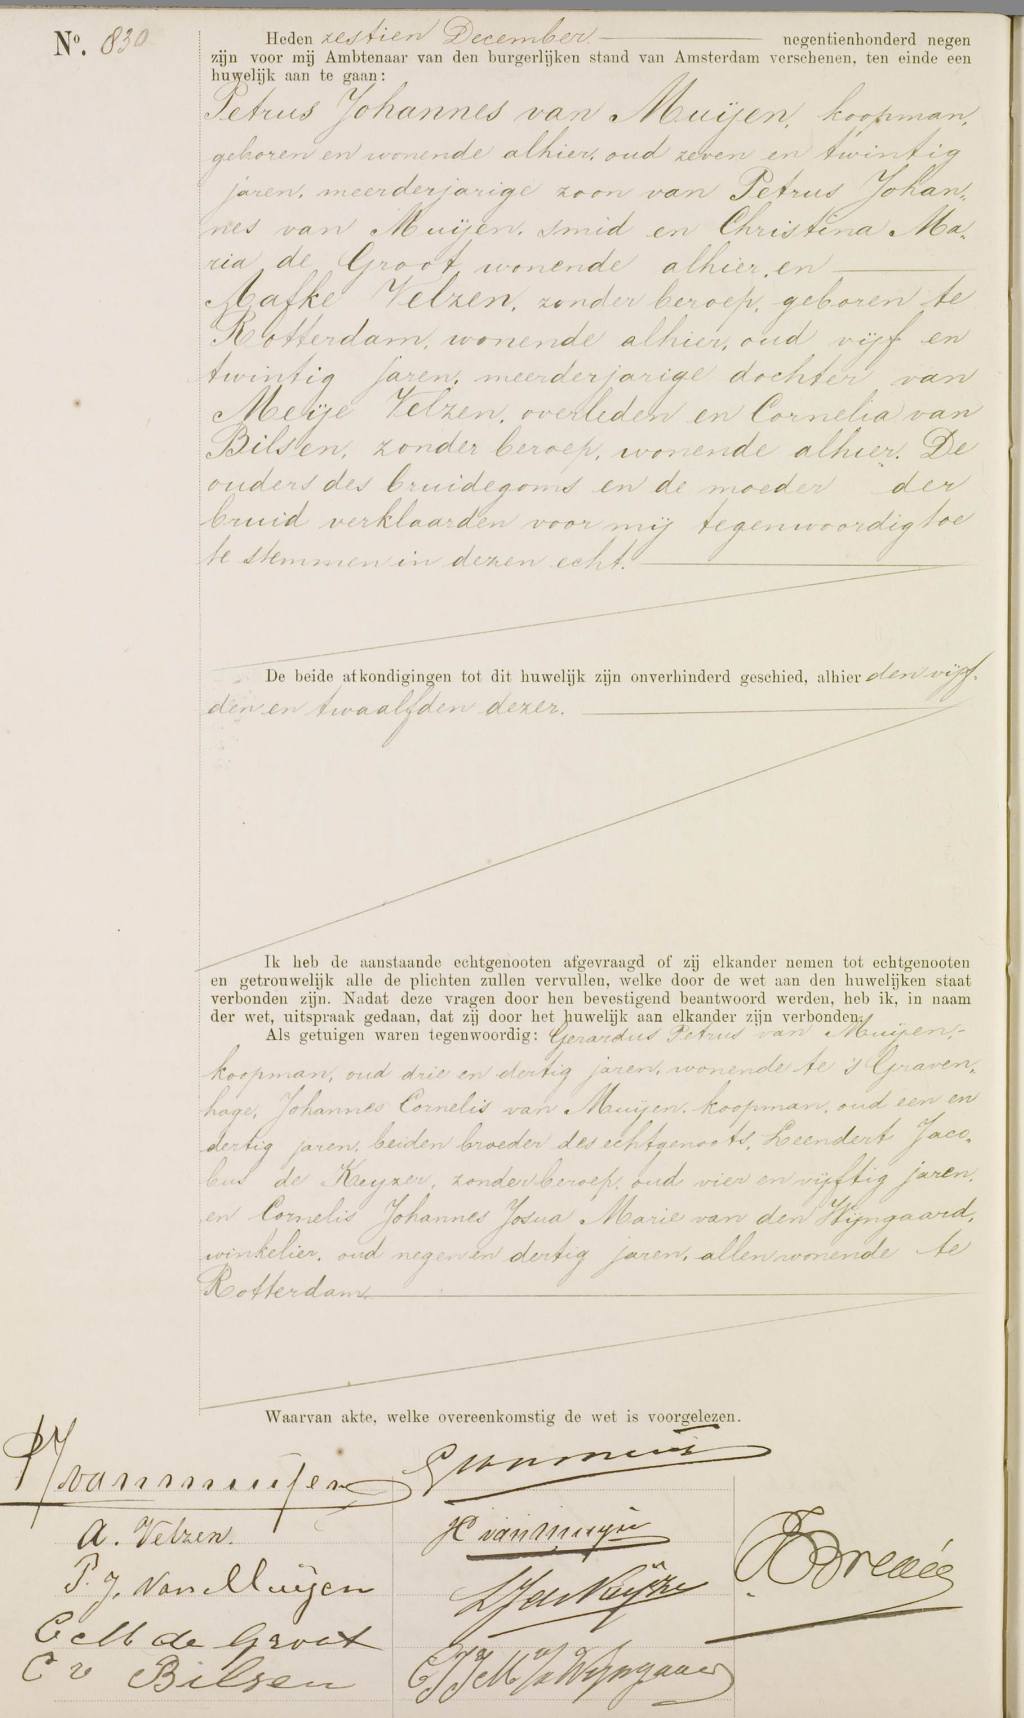 No. 830
Heden zestien December negentienhonderd negen
zijn voor mij Ambtenaar van den burgerlijken stand van Amsterdam verschenen, ten einde een
huwelijk aan te gaan:
Petrus Johannes van Muijen, koopman,
geboren en wonende alhier, oud zeven en twintig
jaren, meerderjarige zoon van Petrus Johan-
nes van Muijen, smid en Christina Ma-
ria de Groot, wonende alhier, en
Aafke Velzen, zonder beroep, geboren te
Rotterdam, wonende alhier, oud vijf en
twintig jaren, meerderjarige dochter van
Meije Velzen, overleden en Cornelia van
Bilsen, zonder beroep, wonende alhier. De
ouders des bruidegoms en de moeder der
bruid verklaarden voor mij tegenwoordig toe
te stemmen in dezen echt.
De beide afkondigingen tot dit huwelijk zijn onverhinderd geschied, alhier den vijf-
den en twaalfden dezer.
Ik heb de aanstaande echtgenooten afgevraagd of zij elkander nemen tot echtgenooten
en getrouwelijk alle de plichten zullen vervullen, welke door de wet aan den huwelijken staat
verbonden zijn. Nadat deze vragen door hen bevestigend beantwoord werden, heb ik, in naam
der wet, uitspraak gedaan, dat zij door het huwelijk aan elkander zijn verbonden.
Als getuigen waren tegenwoordig: Gerardus Petrus van Muijen,
koopman, oud drie en dertig jaren, wonende te 's Graven-
hage, Johannes Cornelis van Muijen, koopman, oud een en
dertig jaren, beiden broeder des echtgenoots, Leendert Jaco-
bus de Keyzer, zonder beroep, oud vier en vijftig jaren,
en Cornelis Johannes Josua Marie van den Wijngaard,
winkelier, oud negen en dertig jaren, allen wonende te
Rotterdam
Waarvan akte, welke overeenkomstig de wet is voorgelezen.
PJ van Muijen
A. Velzen.
JC van Muijen
P. J. van Muijen
L J de Keyzer
C M de Groot
C v Bilsen
C J J M v/d Wijngaard